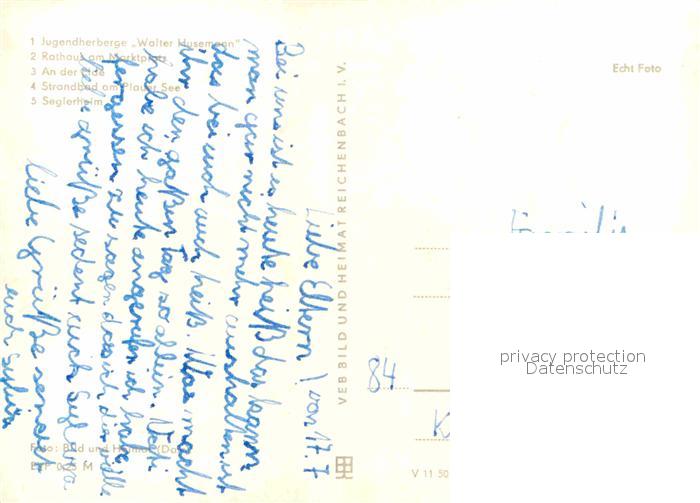 1 Jugendherberge „Walter Husemann"
2 Rathaus am Marktplatz
3 An der Elde
4 Strandbad am Plauer See
5 Seglerheim
Echt Foto
Liebe Eltern! von 17.7
Bei uns ist es heute heiß das kann
man gar nicht mehr aushalten. ist
das bei euch auch heiß. Was macht
ihr den gaßen Tag so allein. Vati
habe ich heute angerufen ich habe
fergessen zu sagen das ich dir
liebe grüße sedent euch
liebe Grüße sendet
euch
VEB BILD UND HEIMAT REICHENBACH I. V.
Familie
84
K
privacy protection
Datenschutz
Foto: Bild und Heimat
EVP 0,25 M
V 11 50